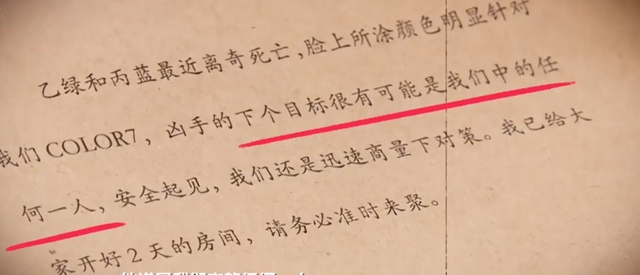 乙绿和丙蓝最近离奇死亡,脸上所涂颜色明显针对
我们COLOR7，凶手的下个目标很有可能是我们中的任
何一人，安全起见，我们还是迅速商量下对策。我已给大
家开好2天的房间，请务必准时来聚。